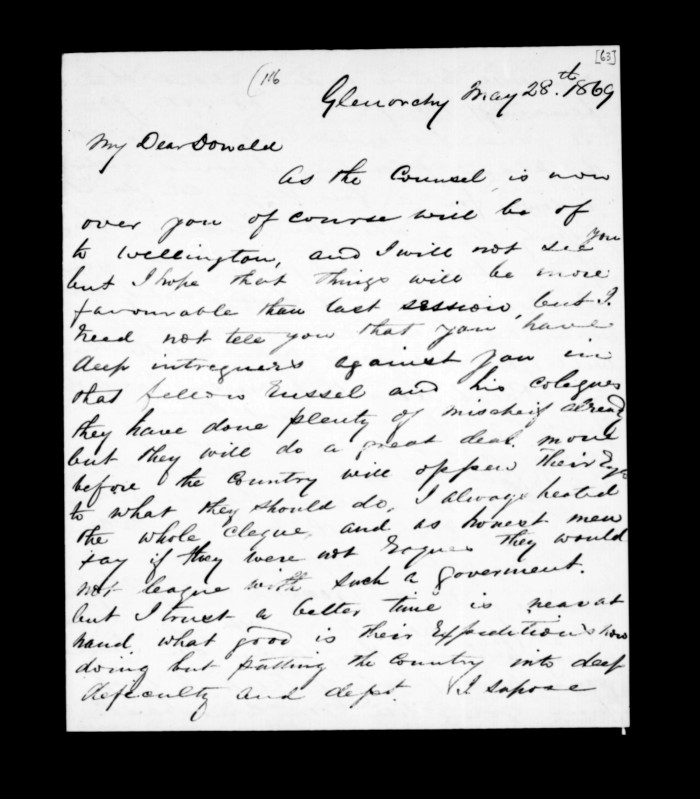 [63]
(116
Glenorchy May 28.th 1869
My Dear Donald
As the Counsel is now
over you of course will be of
to Wellington, and I will not see you
but I hope that things will be more
favourable than last session, but I.
need not tele you that you have
deep intreguers against you in
that fellow Russel and his colegues
they have done plenty of mischeif alread
but they will do a great deal more
before the Country will oppen their Eys
to what they should do, I always heated
the whole clegue, and as honest men
say if they were not Rogues they would
not league with such a goverment.
but I trust a better time is near at
hand. what good is their Expeditions now
doing but putting the Country into deep
defeculty and dept. I sopose